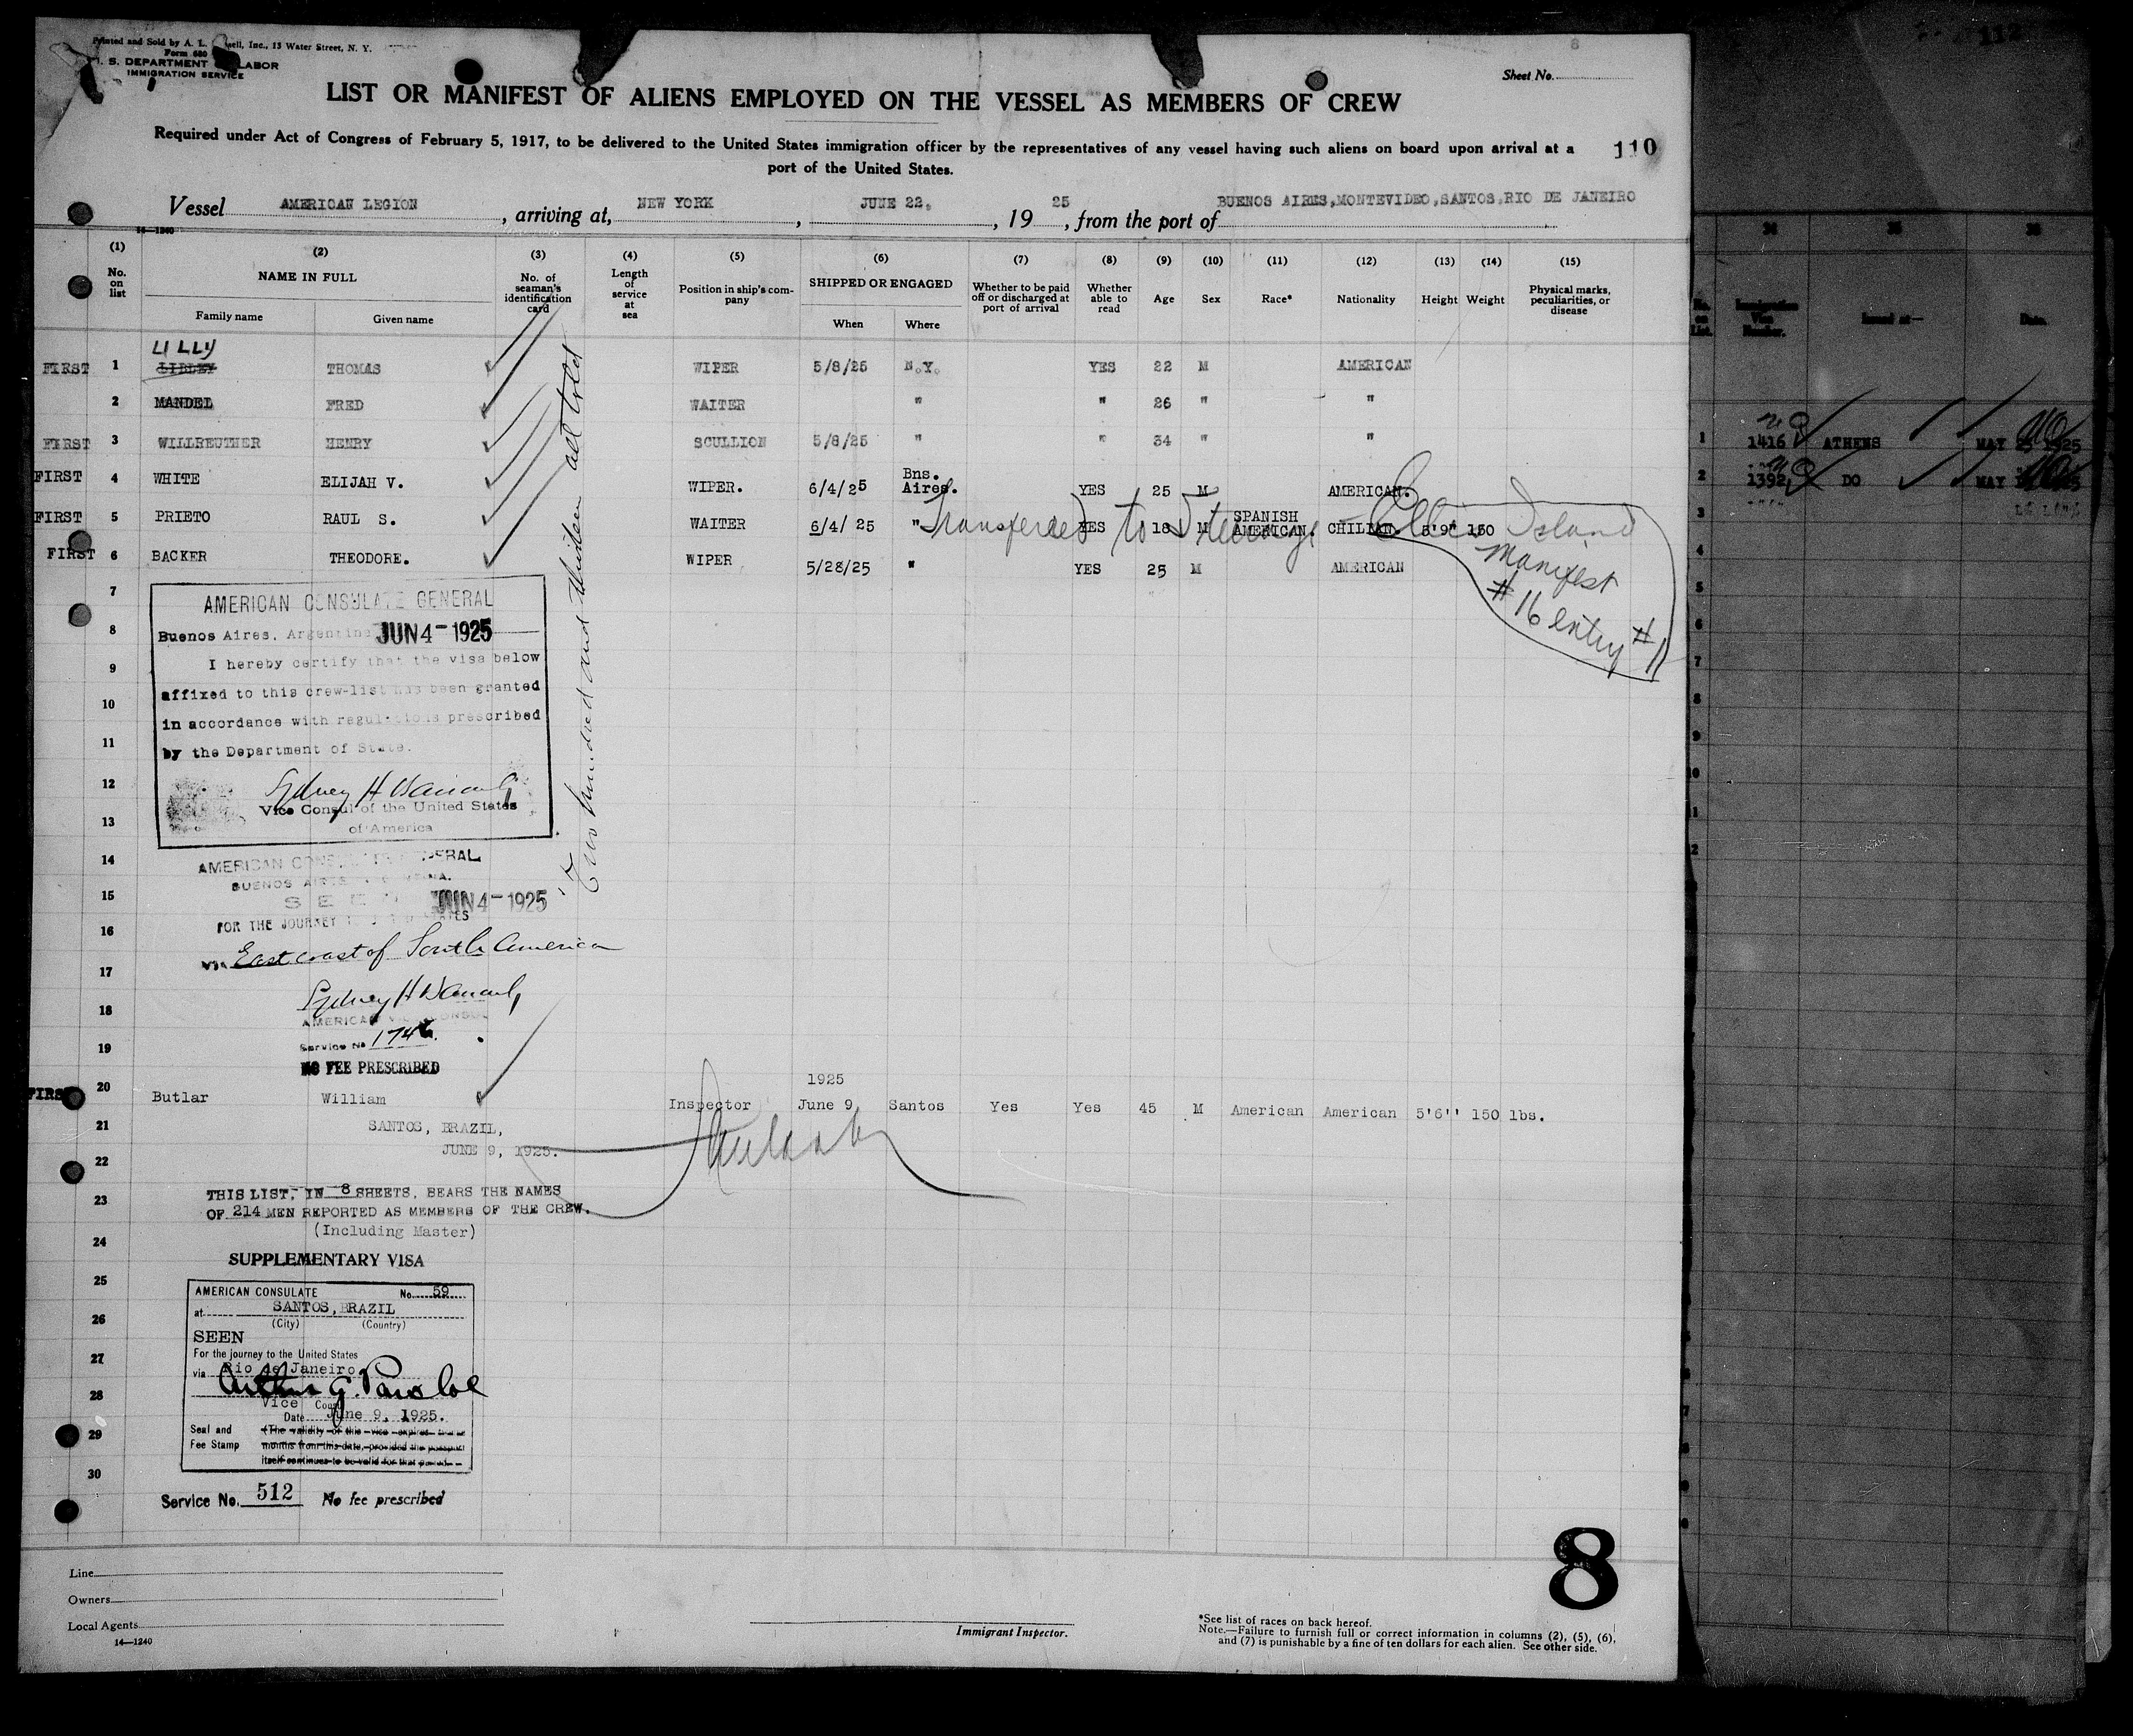 Printed and Sold by A. L. ell, Inc., 13 Water Street, N. Y.
Form 680
S. DEPARTMENT LABOR
IMMIGRATION SERVICE
8
Sheet No.
LIST OR MANIFEST OF ALIENS EMPLOYED ON THE VESSEL AS MEMBERS OF CREW
Required under Act of Congress of February 5, 1917, to be delivered to the United States immigration officer by the representatives of any vessel having such aliens on board upon arrival at a
port of the United States.
110
Vessel AMERICAN LEGION, arriving at, NEW YORK, JUNE 22, 1925, from the port of BUENOS AIRES,MONTEVIDEO,SANTOS,RIO DE JANEIRO
14—1240
(1) (2) (3) (4) (5) (6) (7) (8) (9) (10) (11) (12) (13) (14) (15)
No. on list NAME IN FULL Family name Given name No. of seaman's identification card Length of service at sea Position in ship's company SHIPPED OR ENGAGED When Where Whether to be paid off or discharged at port of arrival Whether able to read Age Sex Race* Nationality Height Weight Physical marks, peculiarities, or disease
LILLY
FIRST 1 LIBLEY THOMAS WIPER 5/8/25 N.Y. YES 22 M AMERICAN
2 MANDEL FRED WAITER " " 26 " "
FIRST 3 WILLREUTHER HENRY SCULLION 5/8/25 " " 34 " "
FIRST 4 WHITE ELIJAH V. WIPER. 6/4/25 Bns. Aires. YES 25 M AMERICAN.
FIRST 5 PRIETO RAUL S. WAITER 6/4/25 " YES 18 M SPANISH AMERICAN. CHILIAN. 5'9" 150
Transfered to Steerage - Ellis Island
Manifest
#16 entry #11
FIRST 6 BACKER THEODORE. WIPER 5/28/25 " YES 25 M AMERICAN
Two hundred and thirteen all told
7
8
9
10
11
12
13
14
15
16
17
18
19
AMERICAN CONSULATE GENERAL
Buenos Aires, Argentine JUN 4-1925
I hereby certify that the visa below
affixed to this crew-list has been granted
in accordance with regulations prescribed
by the Department of State.
Sydney H
Vice Consul of the United States
of America
AMERICAN CONSULATE GENERAL
BUENOS AIRES
SEEN JUN 4-1925
FOR THE JOURNEY STATES
via East coast of South America
Sydney H
AMERICAN VICE CONSUL
Service No 1746.
NO FEE PRESCRIBED
1925
FIRST 20 Butlar William Inspector June 9, Santos Yes Yes 45 M American American 5'6'' 150 lbs.
21
SANTOS, BRAZIL,
JUNE 9, 1925.
22
23
THIS LIST, IN 8 SHEETS, BEARS THE NAMES
OF 214 MEN REPORTED AS MEMBERS OF THE CREW.
(Including Master)
24
SUPPLEMENTARY VISA
25
26
27
28
29
30
AMERICAN CONSULATE No. 59
at SANTOS, BRAZIL
(City) (Country)
SEEN
For the journey to the United States
via Rio de Janeiro
Arthur G. Parsloe
Vice Consul
Date June 9, 1925.
Seal and Fee Stamp
(The validity of this vise expires
months from this date, provided the passport
itself continues to be valid for that period.
Service No. 512 No fee prescribed
8
Line
Owners
Local Agents
14—1240
Immigrant Inspector.
*See list of races on back hereof.
Note.—Failure to furnish full or correct information in columns (2), (5), (6),
and (7) is punishable by a fine of ten dollars for each alien. See other side.
112
34 35 36
No. on List. Immigration Visa Number. Issued at— Date.
1 1416 ATHENS MAY 25 1925
2 1392 DO MAY
3
4
5
6
7
8
9
10